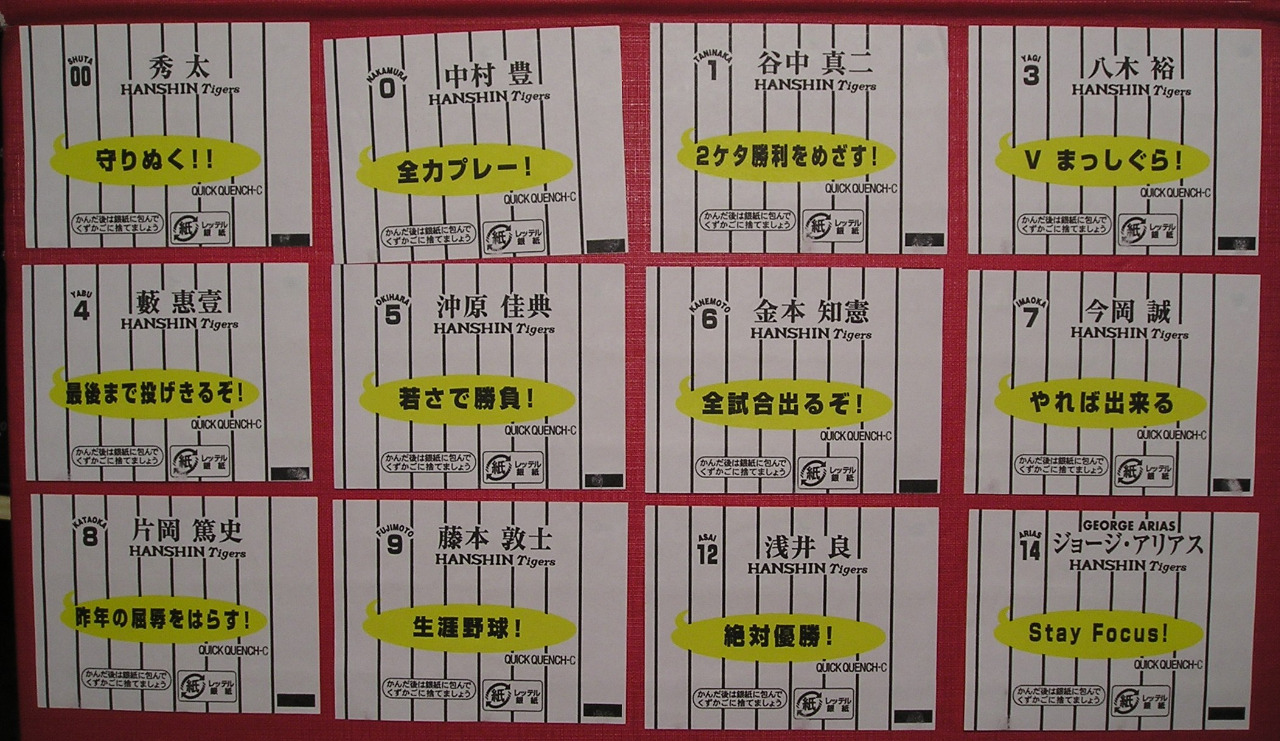 SHUTA
00
秀 太
HANSHIN Tigers
守りぬく!!
QUICK QUENCH-C
かんだ後は銀紙に包んで
くずかごに捨てましょう
紙
レッテル
銀 紙
NAKAMURA
0
中村 豊
HANSHIN Tigers
全力プレー!
QUICK QUENCH-C
かんだ後は銀紙に包んで
くずかごに捨てましょう
紙
レッテル
銀 紙
TANINAKA
1
谷中 真二
HANSHIN Tigers
2ケタ勝利をめざす!
QUICK QUENCH-C
かんだ後は銀紙に包んで
くずかごに捨てましょう
紙
レッテル
銀 紙
YAGI
3
八木 裕
HANSHIN Tigers
V まっしぐら!
QUICK QUENCH-C
かんだ後は銀紙に包んで
くずかごに捨てましょう
紙
レッテル
銀 紙
YABU
4
藪 恵壹
HANSHIN Tigers
最後まで投げきるぞ!
QUICK QUENCH-C
かんだ後は銀紙に包んで
くずかごに捨てましょう
紙
レッテル
銀 紙
OKIHARA
5
沖原 佳典
HANSHIN Tigers
若さで勝負!
QUICK QUENCH-C
かんだ後は銀紙に包んで
くずかごに捨てましょう
紙
レッテル
銀 紙
KANEMOTO
6
金本 知憲
HANSHIN Tigers
全試合出るぞ!
QUICK QUENCH-C
かんだ後は銀紙に包んで
くずかごに捨てましょう
紙
レッテル
銀 紙
IMAOKA
7
今岡 誠
HANSHIN Tigers
やれば出来る
QUICK QUENCH-C
かんだ後は銀紙に包んで
くずかごに捨てましょう
紙
レッテル
銀 紙
KATAOKA
8
片岡 篤史
HANSHIN Tigers
昨年の屈辱をはらす!
QUICK QUENCH-C
かんだ後は銀紙に包んで
くずかごに捨てましょう
紙
レッテル
銀 紙
FUJIMOTO
9
藤本 敦士
HANSHIN Tigers
生涯野球!
QUICK QUENCH-C
かんだ後は銀紙に包んで
くずかごに捨てましょう
紙
レッテル
銀 紙
ASAI
12
浅井 良
HANSHIN Tigers
絶対優勝!
QUICK QUENCH-C
かんだ後は銀紙に包んで
くずかごに捨てましょう
紙
レッテル
銀 紙
ARIAS
14
GEORGE ARIAS
ジョージ・アリアス
HANSHIN Tigers
Stay Focus!
QUICK QUENCH-C
かんだ後は銀紙に包んで
くずかごに捨てましょう
紙
レッテル
銀 紙